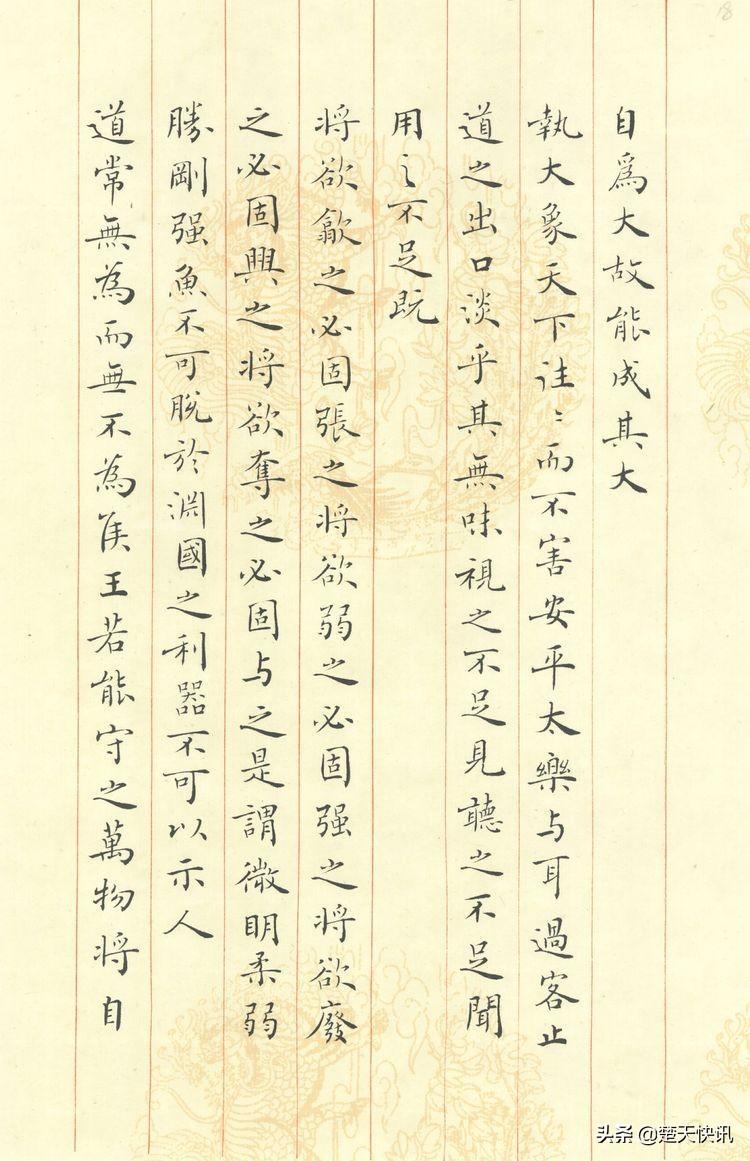 18
自為大故能成其大
執大象天下往〻而不害安平太樂与耳過客止
道之出口淡乎其無味視之不足見聽之不足聞
用〻不足既
将欲歙之必固張之将欲弱之必固强之将欲廢
之必固興之将欲奪之必固与之是謂微明柔弱
勝剛强魚不可脫於淵國之利器不可以示人
道常無為而無不為侯王若能守之萬物将自
头条 @楚天快讯